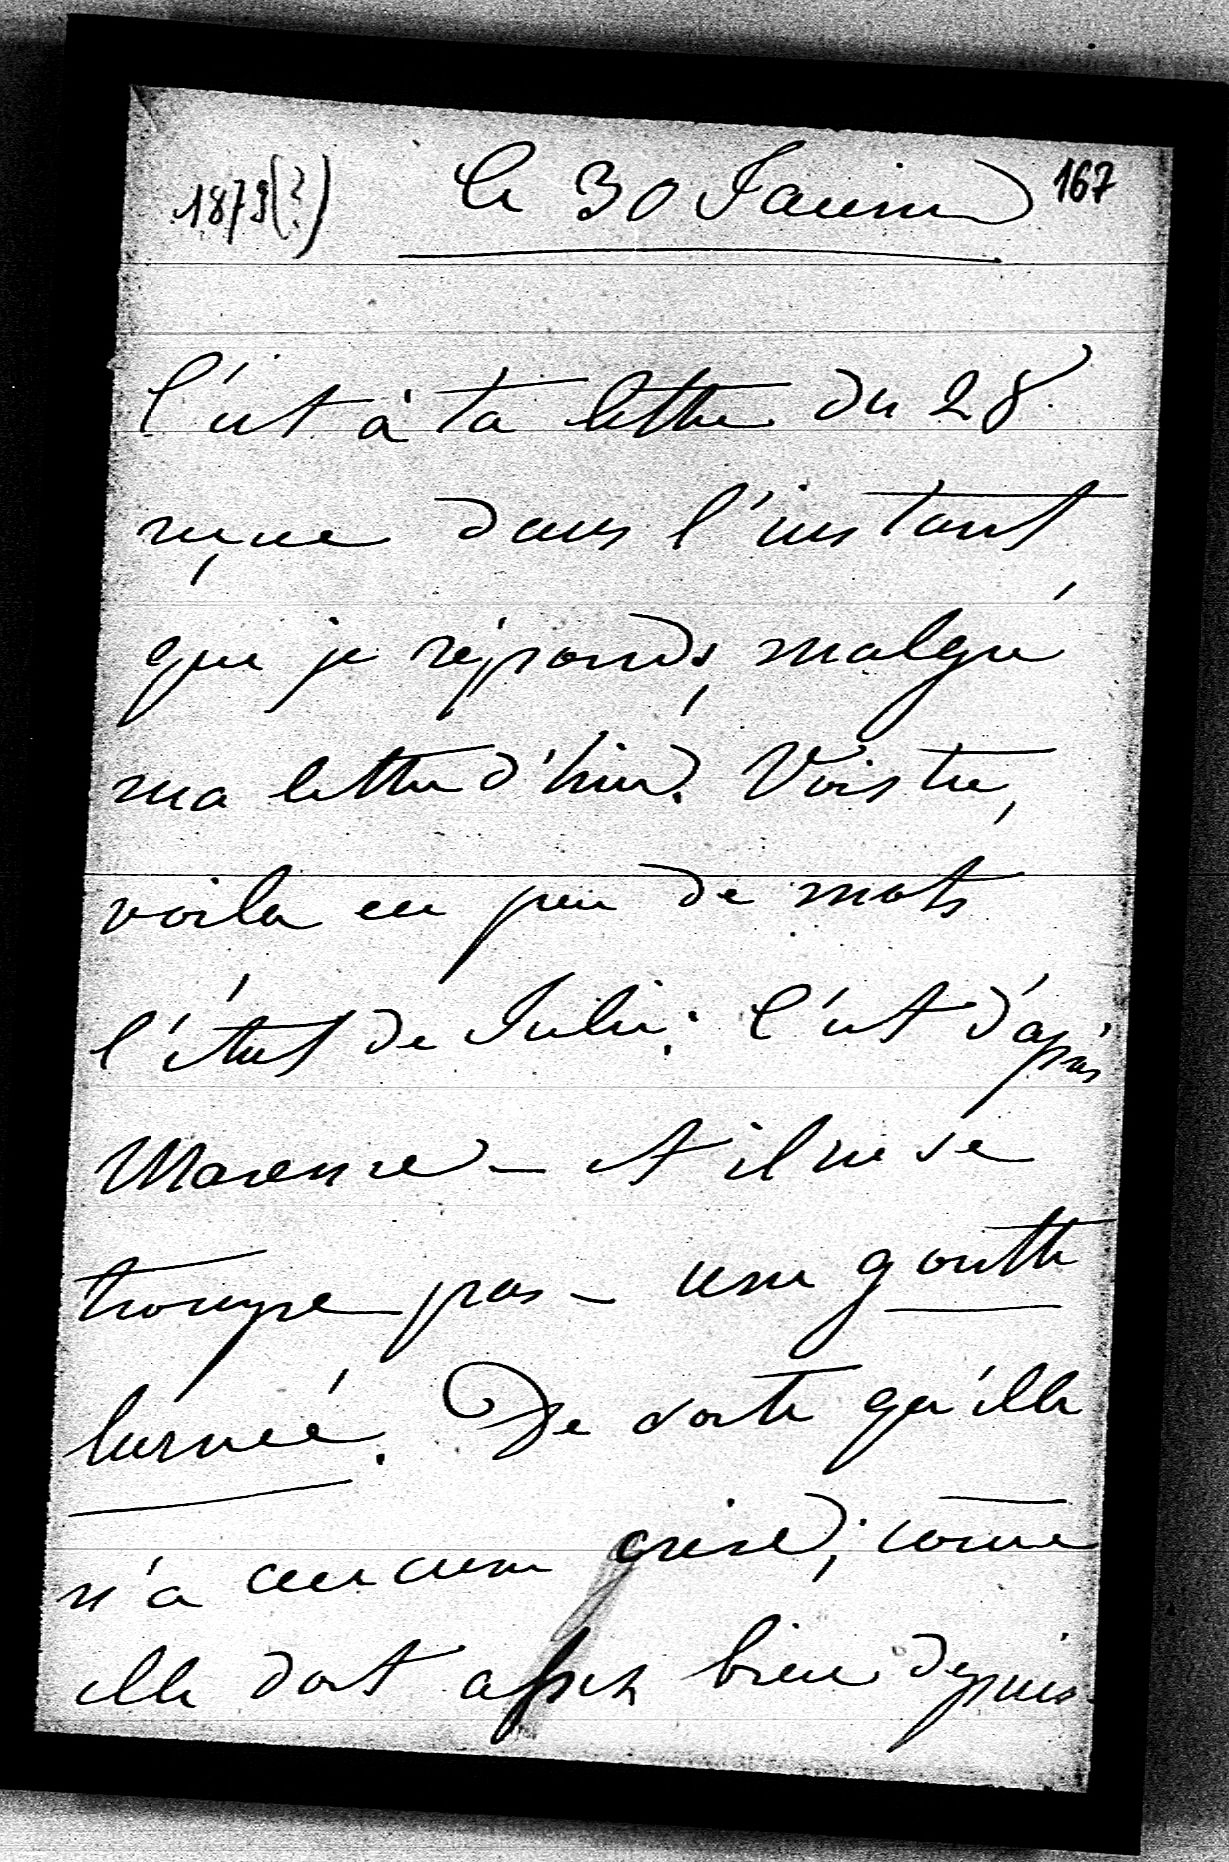 1879(?) Le 30 Janvier 167
C'est à ta lettre du 28
reçue dans l'instant
que je réponds, malgré
ma lettre d'hier. Vois tu,
voila en peu de mots
l'état de Julie: C'est d'après
et il ne se
trompe pas – une goutte
larvée. De sorte qu'elle
n'a aucune crise; come
elle dort assez bien depuis